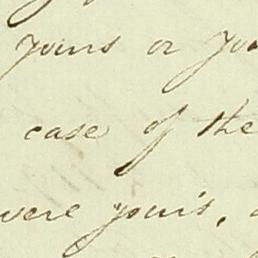 joins or you
case of the
were your's,